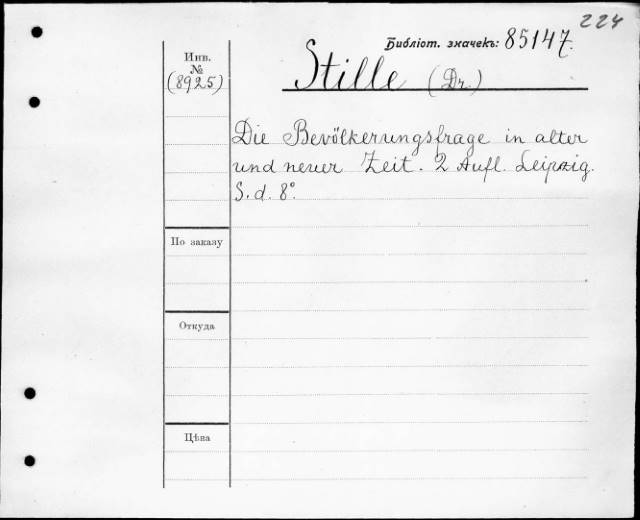 224
Библіот. значекъ: 85147.
Инв.
№
(8925)
Stille (Dr.)
Die Bevölkerungsfrage in alter
und neuer Zeit. 2 Aufl. Leipzig.
S. d. 8°.
По заказу
Откуда
Цѣна